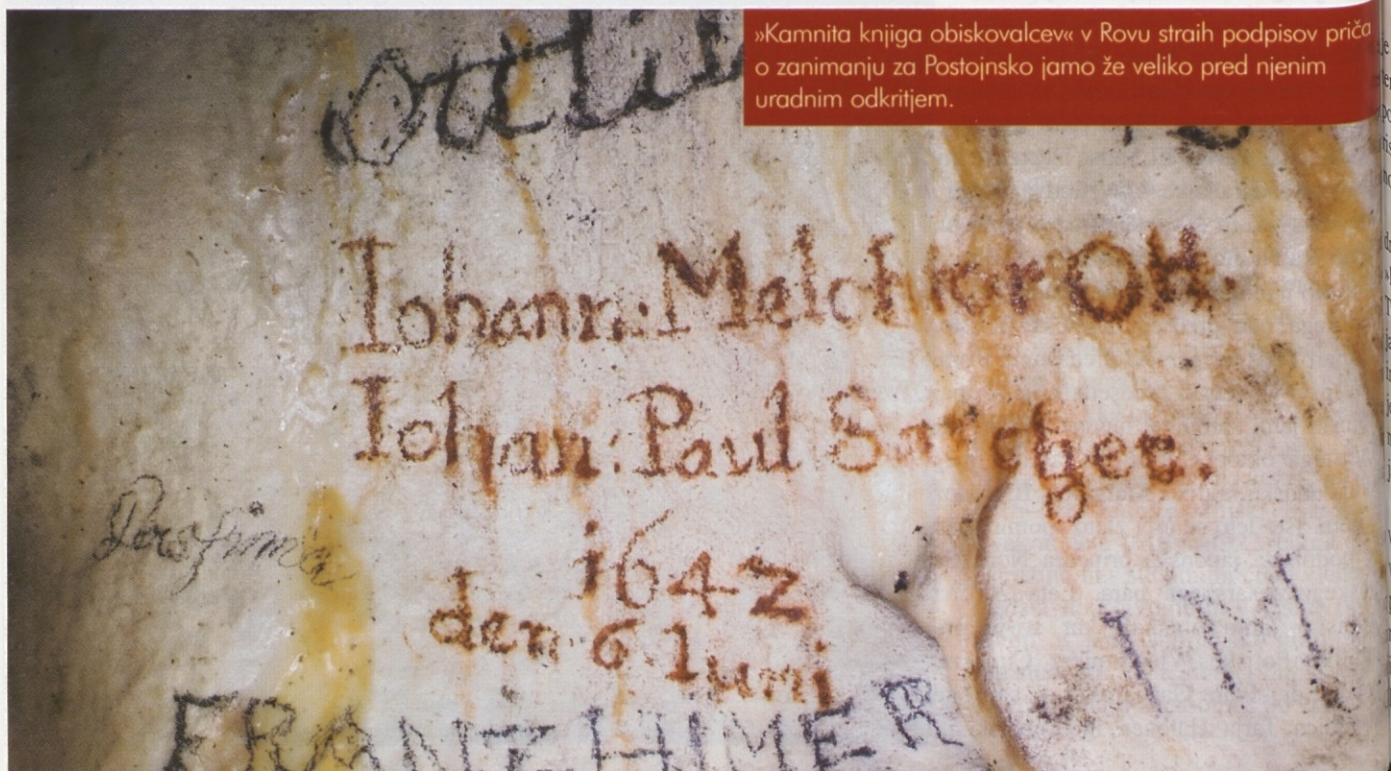 »Kamnita knjiga obiskovalcev« v Rovu straih podpisov priča
o zanimanju za Postojnsko jamo že veliko pred njenim
uradnim odkritjem.
Iohann: Melchior Ott.
Iohan: Paul
1642
den 6 Iuni
IM
FRANZ HIMER